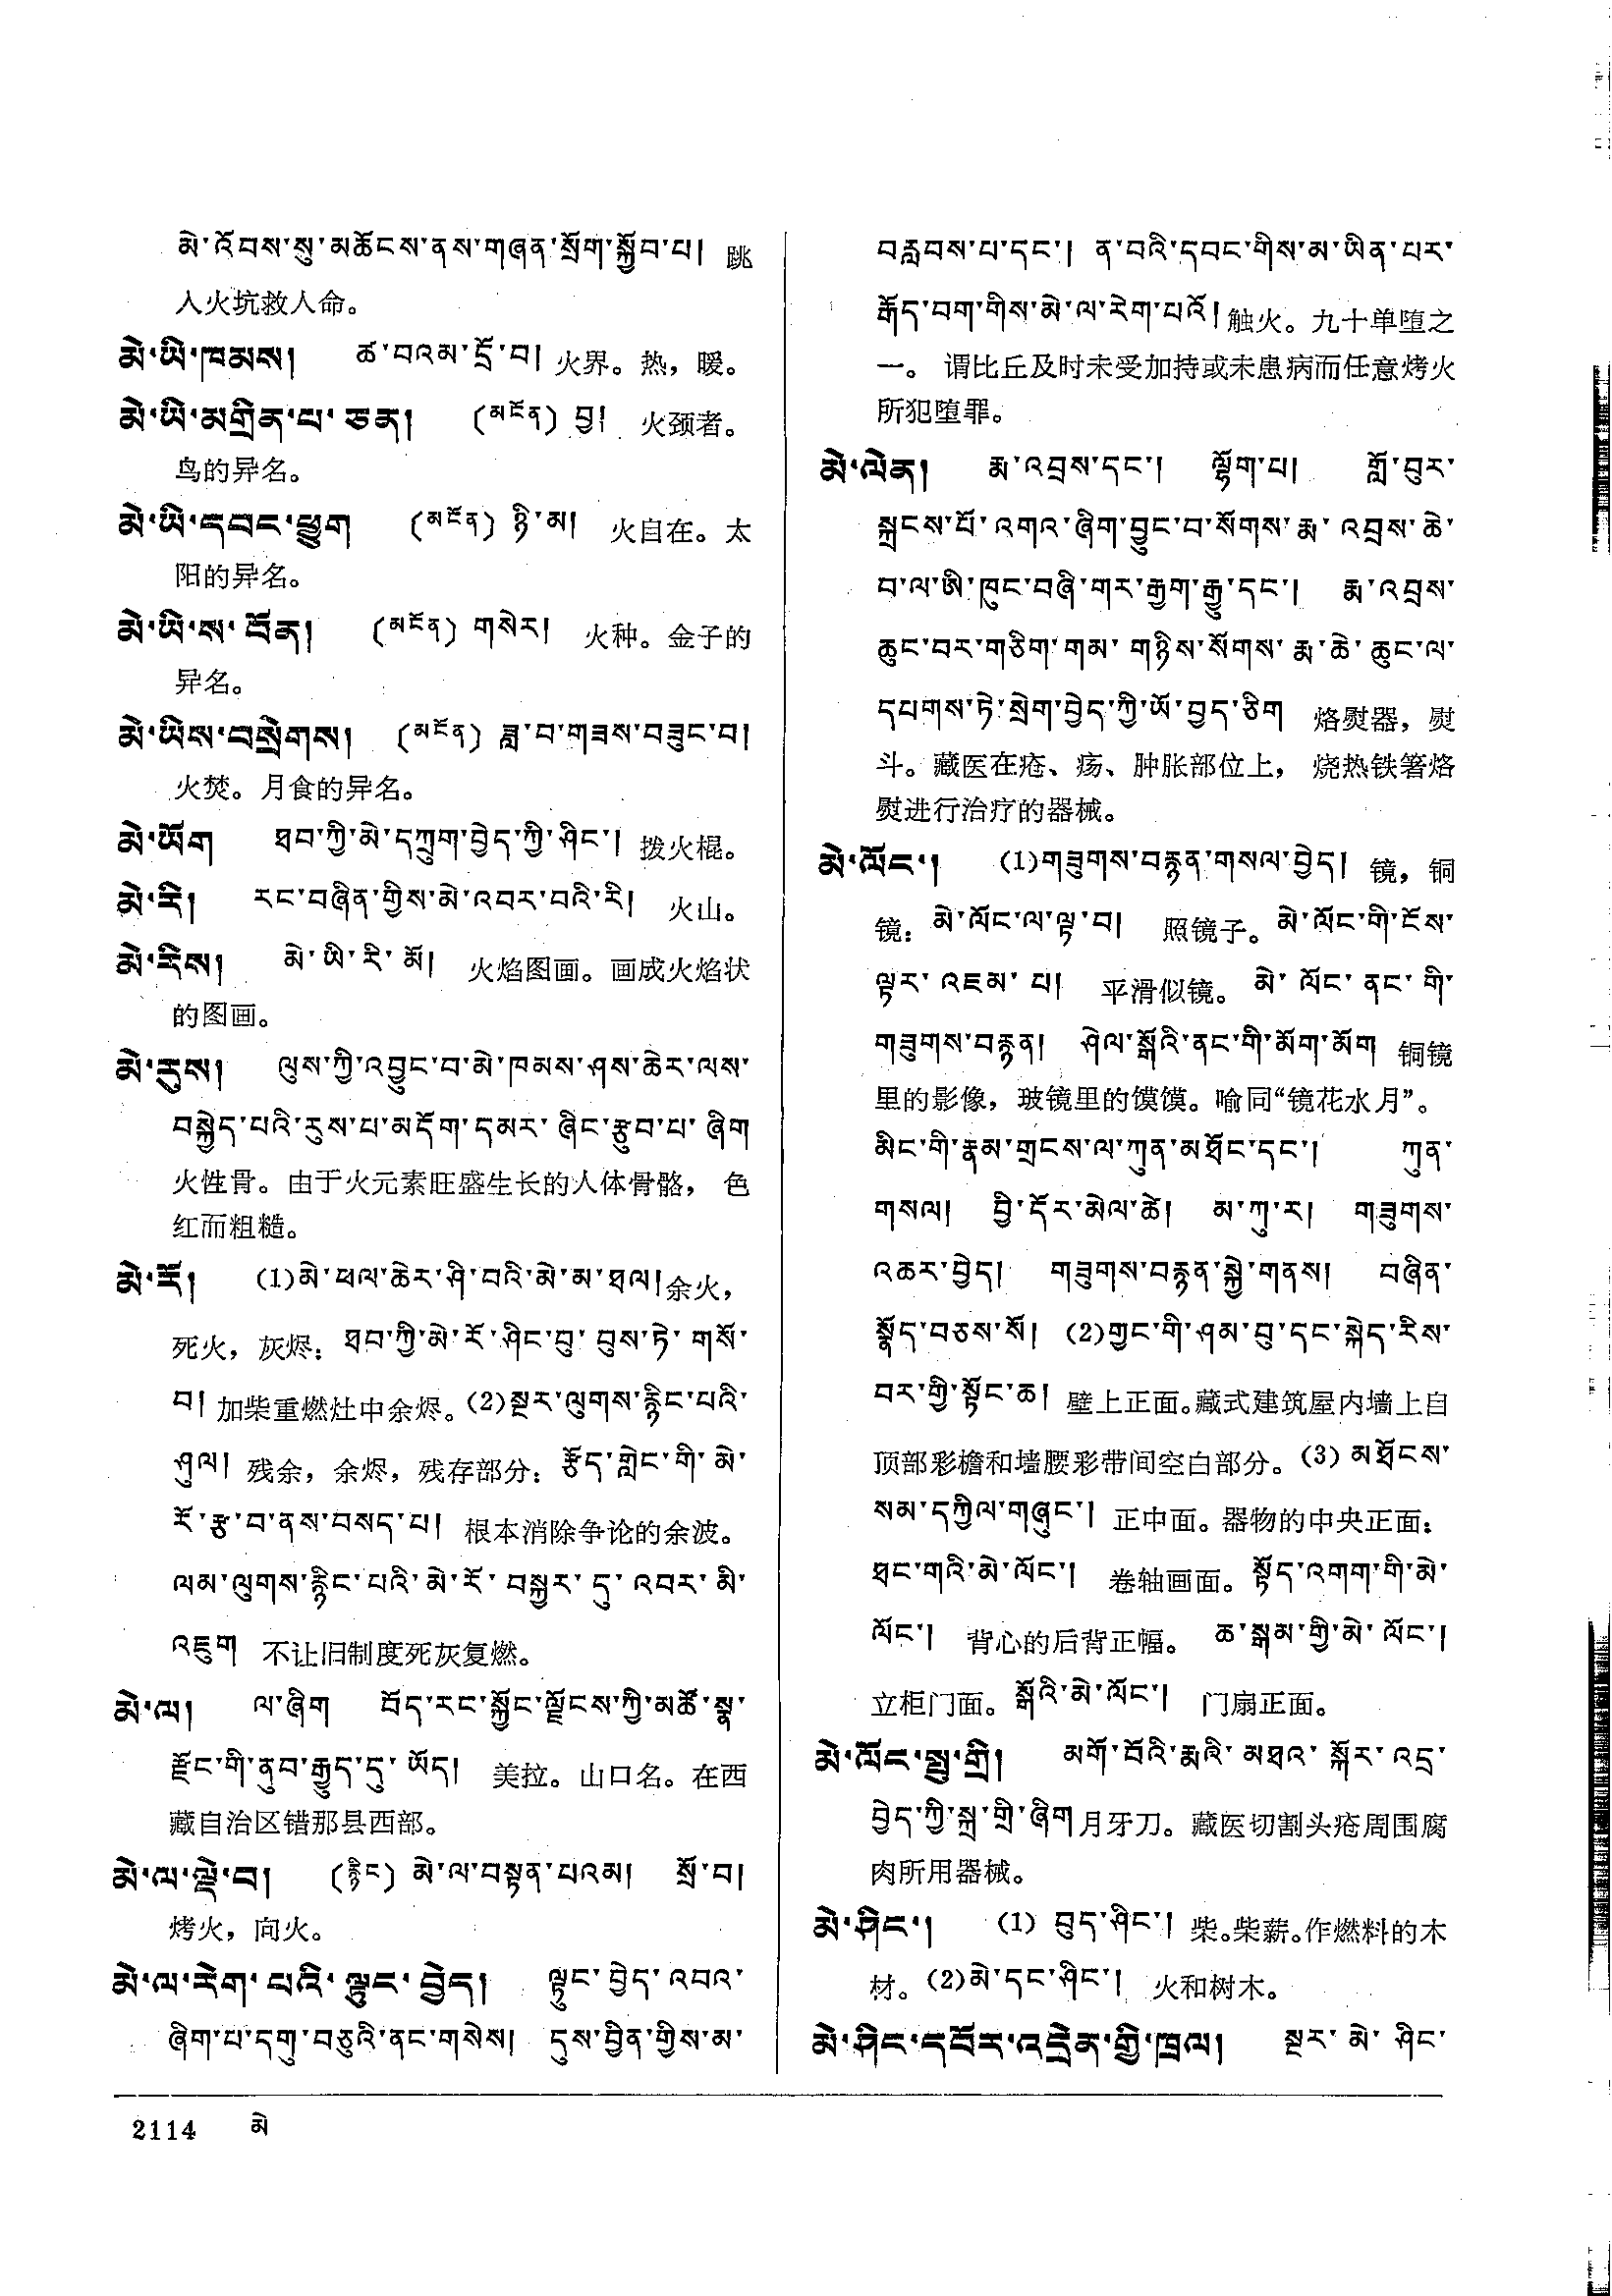 མེ་འོབས་སུ་མཆོངས་ནས་གཞན་སྲོག་སྐྱོབ་པ། 跳
入火坑救人命。
མེ་ཡི་ཁམས། ཚ་བའམ་དྲོ་བ། 火界。热，暖。
མེ་ཡི་མགྲིན་པ་ཅན། (མངོན) བྱ། 火颈者。
鸟的异名。
མེ་ཡི་དབང་ཕྱུག (མངོན) ཉི་མ། 火自在。太
阳的异名。
མེ་ཡི་ས་བོན། (མངོན) གསེར། 火种。金子的
异名。
མེ་ཡིས་བསྲེགས། (མངོན) ཟླ་བ་གཟས་བཟུང་བ།
火焚。月食的异名。
མེ་ཡོག ཐབ་ཀྱི་མེ་དཀྲུག་བྱེད་ཀྱི་ཤིང་། 拨火棍。
མེ་རི། རང་བཞིན་གྱིས་མེ་འབར་བའི་རི། 火山。
མེ་རིས། མེ་ཡི་རི་མོ། 火焰图画。画成火焰状
的图画。
མེ་རུས། ལུས་ཀྱི་འབྱུང་བ་མེ་ཁམས་ཤས་ཆེར་ལས་
བསྐྱེད་པའི་རུས་པ་མདོག་དམར་ཞིང་རྩུབ་པ་ཞིག
火性骨。由于火元素旺盛生长的人体骨骼， 色
红而粗糙。
མེ་རོ། (1)མེ་ཕལ་ཆེར་ཤི་བའི་མེ་མ་ཐལ། 余火，
死火，灰烬：ཐབ་ཀྱི་མེ་རོ་ཤིང་བུ་བུས་ཏེ་གསོ་
བ། 加柴重燃灶中余烬。(2)སྔར་ལུགས་རྙིང་པའི་
ཤུལ། 残余，余烬，残存部分：རྩོད་གླེང་གི་མེ་
རོ་རྩ་བ་ནས་བསད་པ། 根本消除争论的余波。
ལམ་ལུགས་རྙིང་པའི་མེ་རོ་བསྐྱར་དུ་འབར་མི་
འཇུག 不让旧制度死灰复燃。
མེ་ལ། ལ་ཞིག བོད་རང་སྐྱོང་ལྗོངས་ཀྱི་མཚོ་སྣ་
རྫོང་གི་ནུབ་རྒྱུད་དུ་ཡོད། 美拉。山口名。在西
藏自治区错那县西部。
མེ་ལ་ལྡེ་བ། (རྙིང) མེ་ལ་བསྟན་པའམ། སྲོ་བ།
烤火，向火。
མེ་ལ་རེག་པའི་ལྟུང་བྱེད། ལྟུང་བྱེད་འབའ་
ཞིག་པ་དགུ་བཅུའི་ནང་གསེས། དུས་བྱིན་གྱིས་མ་
བརླབས་པ་དང་། ན་བའི་དབང་གིས་མ་ཡིན་པར་
རྒོད་བག་གིས་མེ་ལ་རེག་པའོ། 触火。九十单堕之
一。 谓比丘及时未受加持或未患病而任意烤火
所犯堕罪。
མེ་ལེན། རྨ་འབྲས་དང་། ལྷོག་པ། གློ་བུར་
སྐྲངས་པོ་འགའ་ཞིག་བྱུང་བ་སོགས་རྨ་འབྲས་ཆེ་
བ་ལ་ཨི་ཁུང་བཞི་གར་རྒྱག་རྒྱུ་དང་། རྨ་འབྲས་
ཆུང་བར་གཅིག་གམ་གཉིས་སོགས་རྨ་ཆེ་ཆུང་ལ་
དཔགས་ཏེ་སྲེག་བྱེད་ཀྱི་ཡོ་བྱད་ཅིག 烙熨器，熨
斗。藏医在疮、疡、肿胀部位上， 烧热铁箸烙
熨进行治疗的器械。
མེ་ལོང་། (1)གཟུགས་བརྙན་གསལ་བྱེད། 镜，铜
镜：མེ་ལོང་ལ་ལྟ་བ། 照镜子。མེ་ལོང་གི་ངོས་
ལྟར་འཇམ་པ། 平滑似镜。མེ་ལོང་ནང་གི་
གཟུགས་བརྙན། ཤེལ་སྒོའི་ནང་གི་མོག་མོག 铜镜
里的影像，玻镜里的馍馍。喻同“镜花水月”。
མིང་གི་རྣམ་གྲངས་ལ་ཀུན་མཐོང་དང་། ཀུན་
གསལ། བྱི་དོར་མེལ་ཚེ། མ་ཀུ་ར། གཟུགས་
འཆར་བྱེད། གཟུགས་བརྙན་སྐྱེ་གནས། བཞིན་
སྣོད་བཅས་སོ། (2)གྱང་གི་ཤམ་བུ་དང་སྐེད་རིས་
བར་གྱི་སྟོང་ཆ། 壁上正面。藏式建筑屋内墙上自
顶部彩檐和墙腰彩带间空白部分。(3) མཐོངས་
སམ་དཀྱིལ་གཞུང་། 正中面。器物的中央正面：
ཐང་གའི་མེ་ལོང་། 卷轴画面。སྟོད་འགག་གི་མེ་
ལོང་། 背心的后背正幅。 ཆ་སྒམ་གྱི་མེ་ལོང་།
立柜门面。སྒོའི་མེ་ལོང་། 门扇正面。
མེ་ལོང་སྤུ་གྲི། མགོ་བོའི་རྨའི་མཐའ་སྐོར་འདྲ་
བྱེད་ཀྱི་སྐྲ་གྲི་ཞིག 月牙刀。藏医切割头疮周围腐
肉所用器械。
མེ་ཤིང་། (1) བུད་ཤིང་། 柴。柴薪。作燃料的木
材。(2)མེ་དང་ཤིང་། 火和树木。
མེ་ཤིང་དབོར་འདྲེན་གྱི་ཁྲལ། སྔར་མེ་ཤིང་
2114 མེ